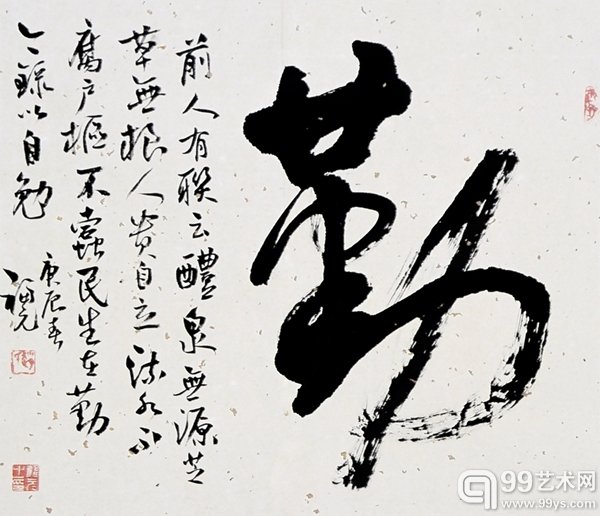 勤
前人有聯云醴泉無源芝
草無根人貴自立流水不
腐户樞不蠹民生在勤
今録以自勉
庚辰春
99艺术网
www.99ys.com